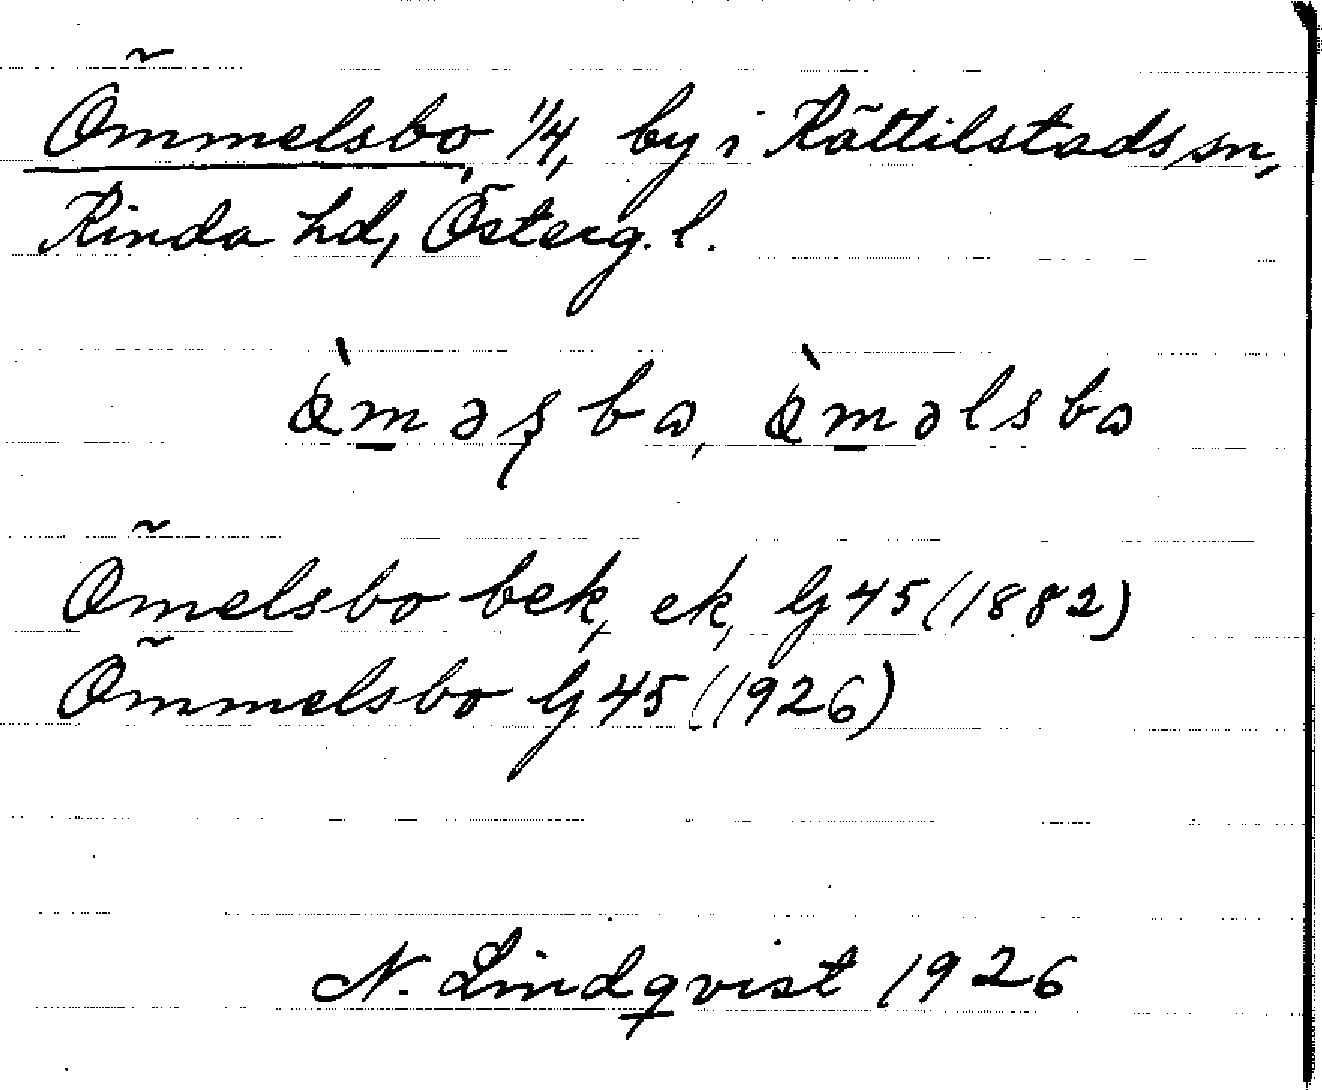 Ömmelsbo, 1/4, by i Kättilstads sn,
Kinda hd, Österg. l.
Ömelsbo bek, ek, G 45 (1882)
Ömmelsbo G 45 (1926)
N. Lindqvist 1926